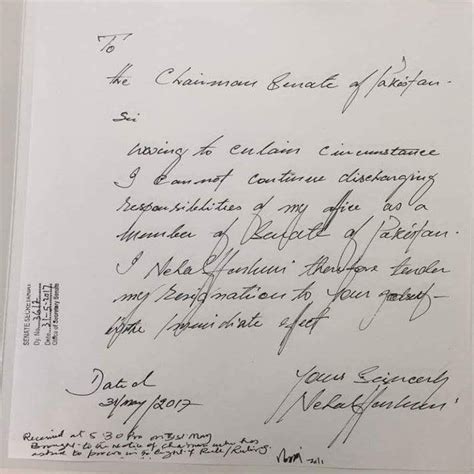 To
the Chairman Senate of Pakistan.
Sir
Owing to certain circumstance
I cannot continue discharging
responsibilities of my office as a
Member of Senate of Pakistan.
I Nehal Hashmi therefore tender
my resignation to your
immediate effect
Dated
31/May/2017
Yours Sincerely
Nehal Hashmi
SENATE SECRETARIAT
Dy. No.
Date 31-5-2017
Office of Secretary Senate
Received at 5 30 Pm on 31st May
Brought to the notice of Chairman who has
asked to process in light of Rule/Ruling